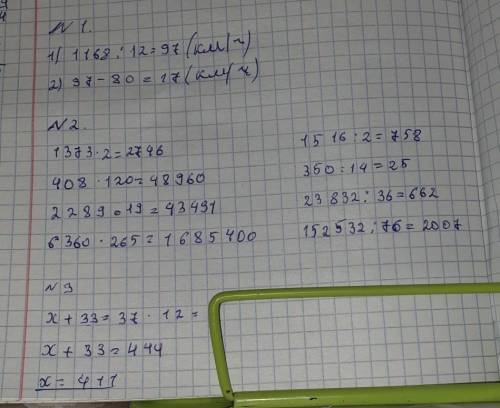 N 1.
1) 1168 : 12 = 97 (км/ч)
2) 97 - 80 = 17 (км/ч)
N2.
1373 · 2 = 2746
408 · 120 = 48960
2289 · 19 = 43491
6360 · 265 = 1685400
1516 : 2 = 758
350 : 14 = 25
23832 : 36 = 662
152532 : 76 = 2007
N 3
x + 33 = 37 · 12 =
x + 33 = 444
x = 411